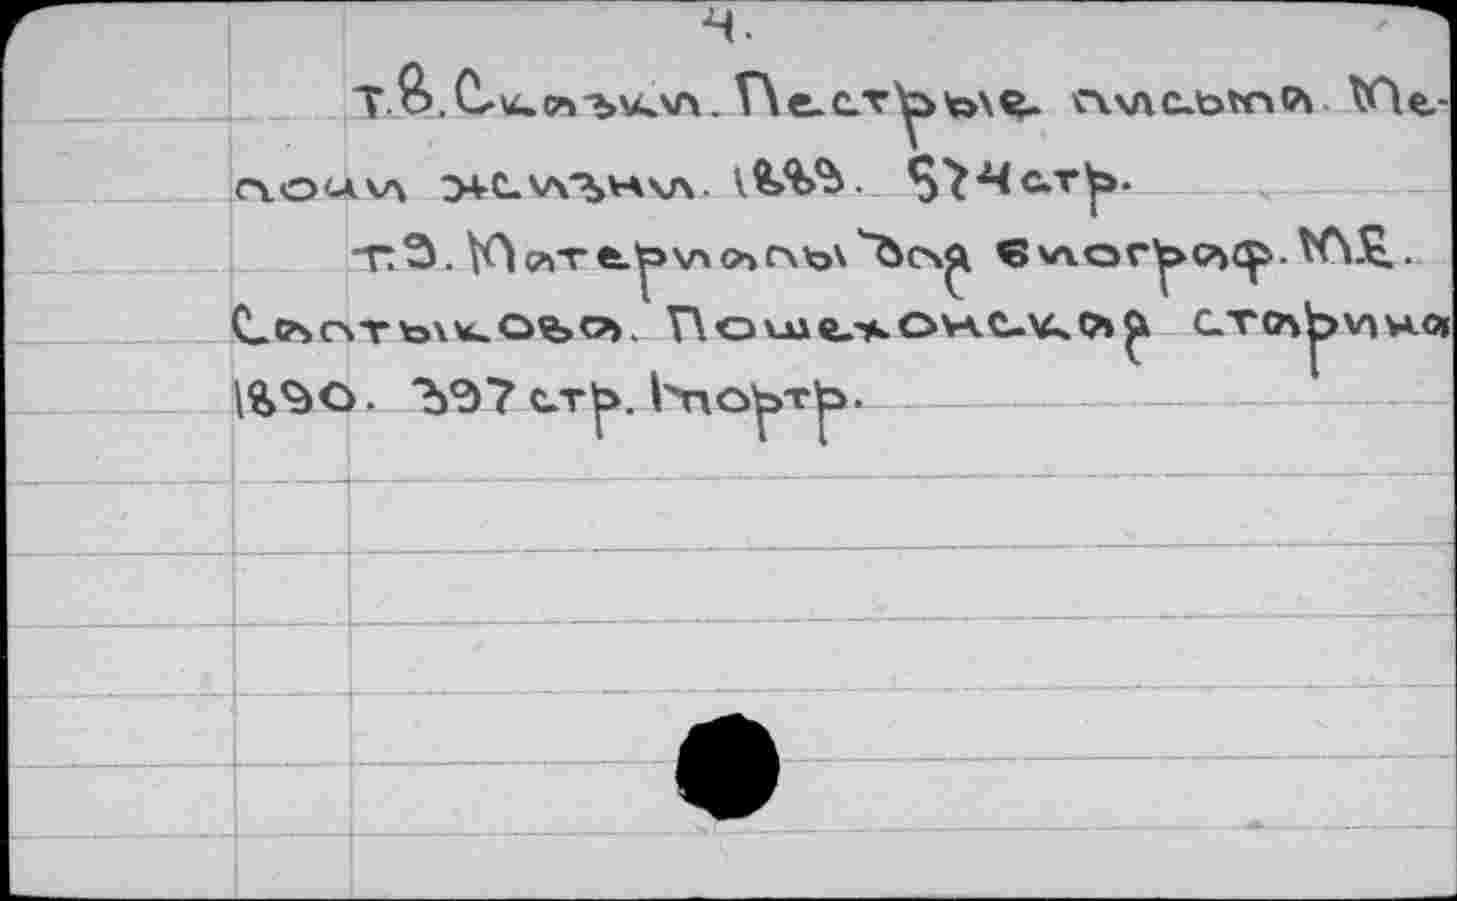 4.
т.8. Сказки. Пестрые письма. Ме-
лочи жизни. 1889. 574 стр.
т.9. Материалы для биограф. М.Е.
Салтыкова. Пошехонская старина
1890. 597 стр. 1 портр.